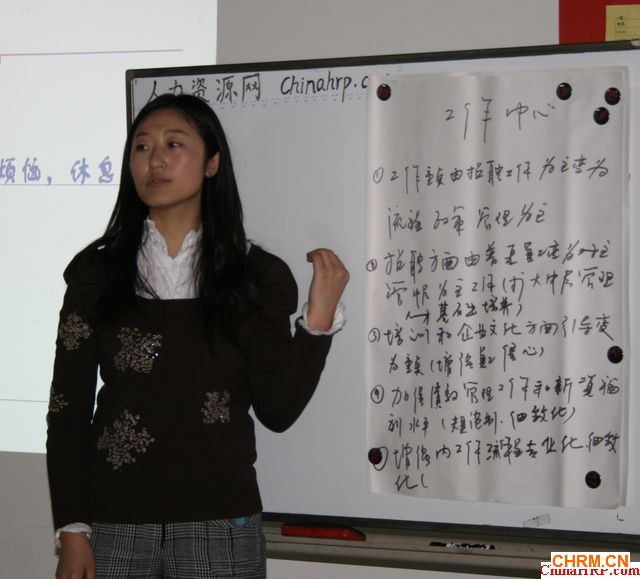 人力资源网 Chinahrp.c
烦恼，休息
工作中心
①工作重点由招聘工作为主变为
流程政策管理为主
②招聘方面由普通员工变为以主
管级为主工作(扩大中层管理
基石业培养)
③培训和企业文化方面引导变
为重点(增强员工信心)
④加强绩效管理工作和薪资福
利水平(规范制.细致化)
⑤增强内工作流程专业化.细致
化(
CHRM.CN
ChinaHRP.com